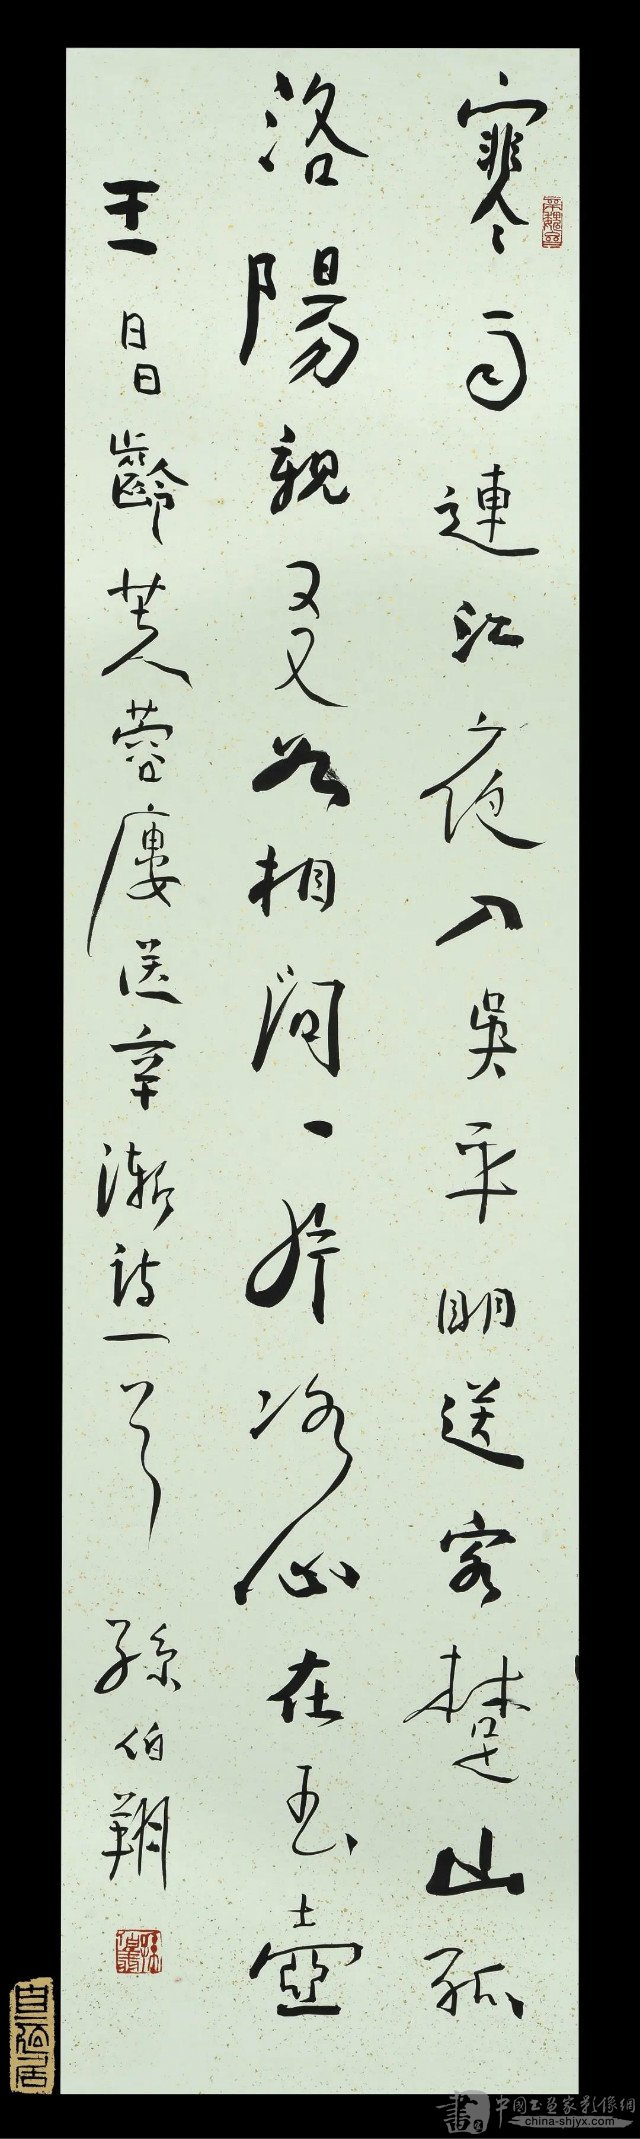 寒雨連江夜入吳平明送客楚山孤
洛陽親友如相問一片冰心在玉壺
王昌齡芙蓉廔送辛漸詩一首 孫伯翔
書
中國书画家影像網
china-shjyx.com